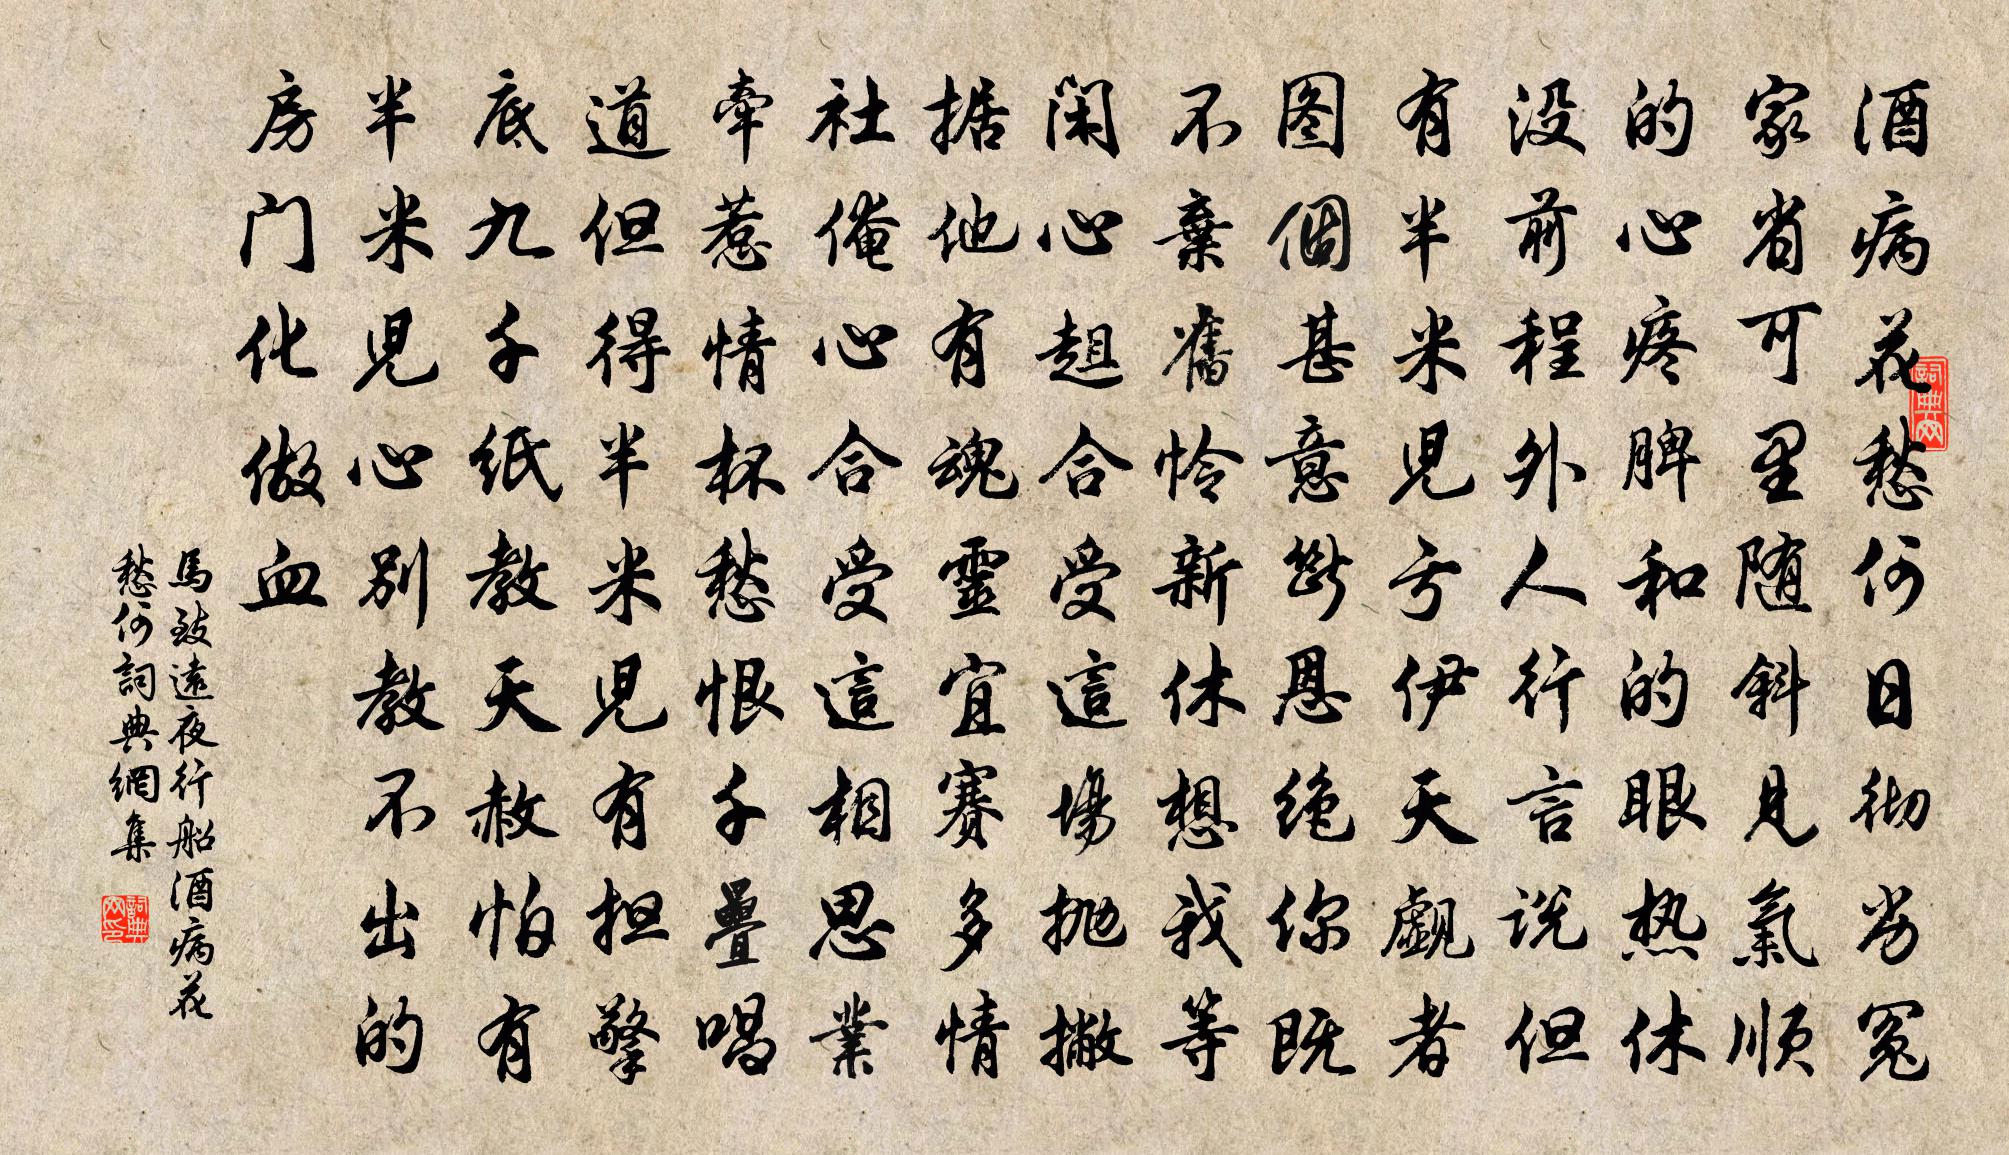 酒病花愁何日彻劣冤
家省可里随斜见氣顺
的心疼脾和的眼热休
没前程外人行言说但
有半米兒亏伊天觑者
图個甚意断恩绝你既
不棄舊怜新休想我等
闲心趄合受這場抛撇
据他有魂靈宜赛多情
社俺心合受這相思業
牵惹情杯愁恨千疊唱
道但得半米兒有担擎
底九千纸教天赦怕有
半米兒心别教不出的
房门化做血
馬致遠夜行船酒病花
愁何詞典網集
詞典网
詞典网印